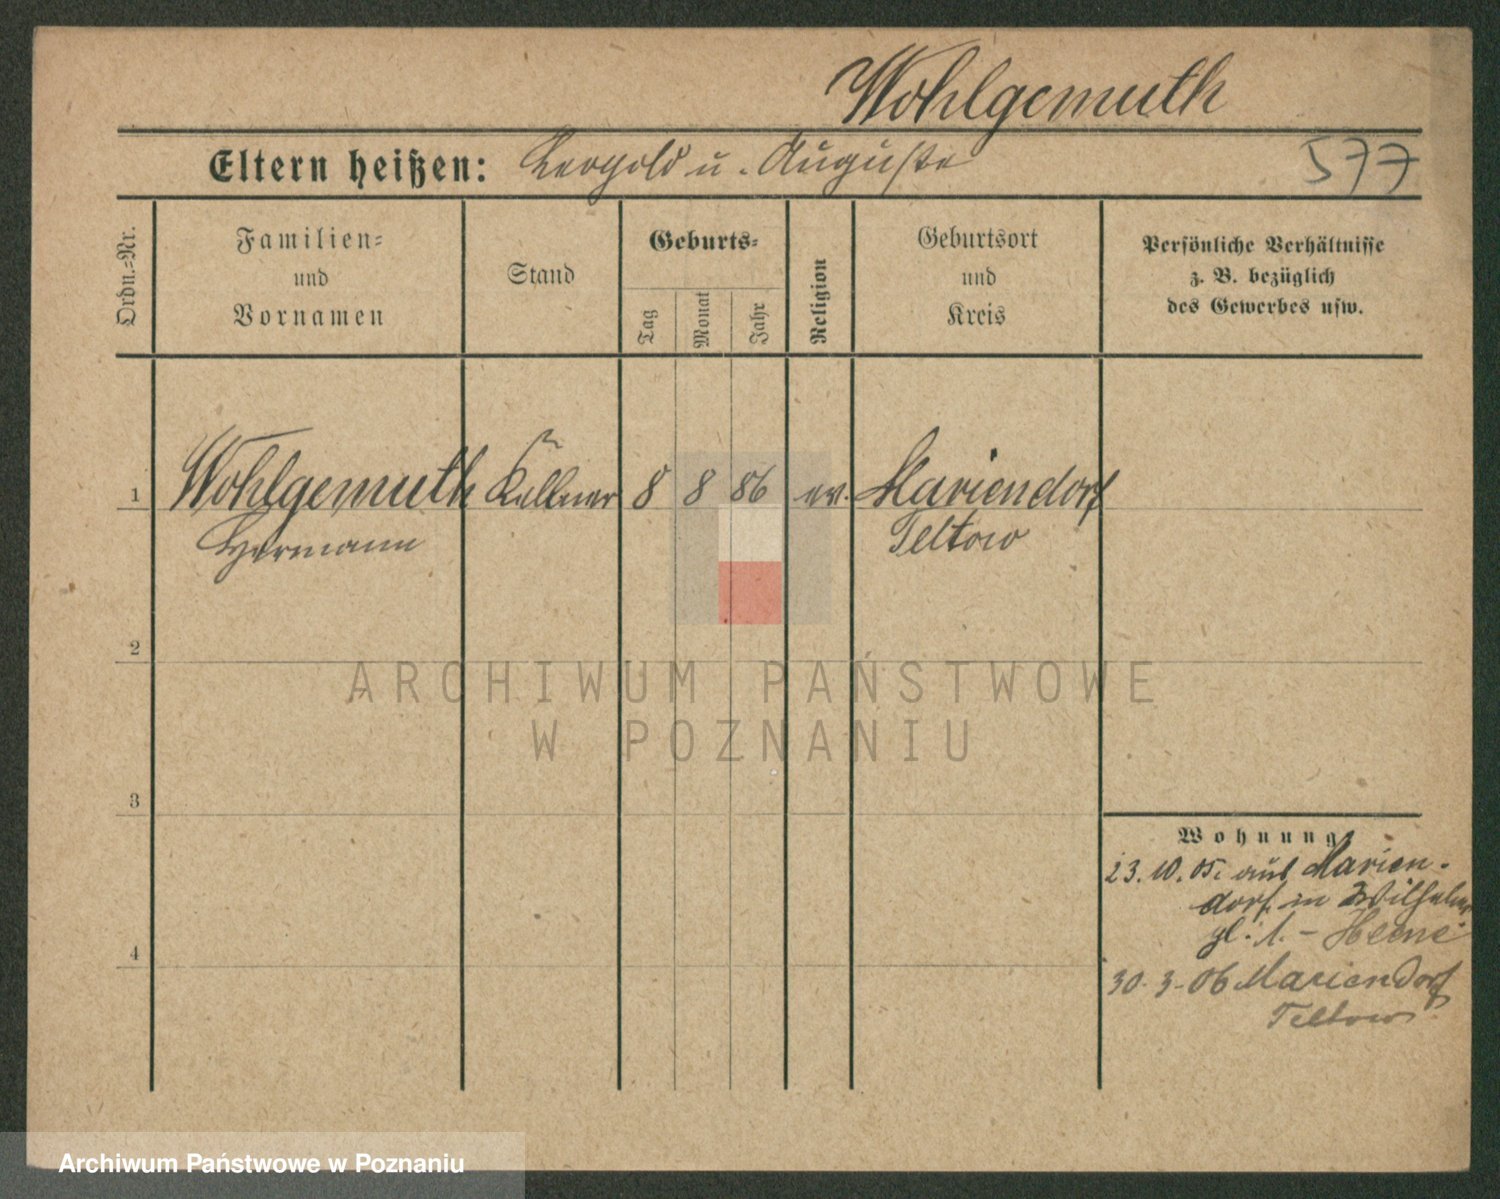 Wohlgemuth
Eltern heißen: Leopold u. Auguste 577
Ordn.-Nr.
Familien-
und
Vornamen
Stand
Geburts-
Tag
Monat
Jahr
Religion
Geburtsort
und
Kreis
Persönliche Verhältnisse
z. B. bezüglich
des Gewerbes usw.
1 Wohlgemuth Kellner 8 8 86 ev. Mariendorf
Hermann Teltow
2
ARCHIWUM PAŃSTWOWE
W POZNANIU
3
Wohnung
23. 10. 05. aus Marien-
dorf in Wilhelm
pl. 1. -
4
30. 3. 06 Mariendorf
Teltow
Archiwum Państwowe w Poznaniu